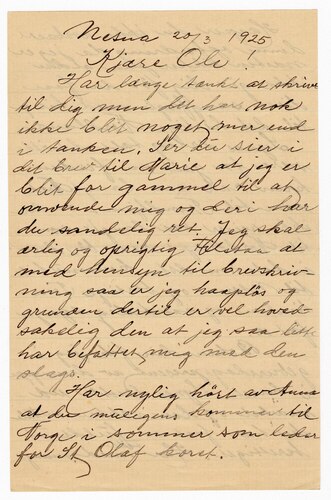 Nesna 20/3 1925
Kjære Ole!
Har længe tænkt at skrive
til dig men det har nok
ikke blet noget mer end
i tanken. Ser du sier i
det brev til Marie at jeg er
blit for gammel til at
omvende mig og deri har
du sandelig ret. Jeg skal
ærlig og oprigtig tilstaa at
med hensyn til brevskriv-
ning saa er jeg haapløs og
grunden dertil er vel hoved-
sakelig den at jeg saa litt
har befattet mig med den
slags.
Har nylig hørt av Anna
at du muligens kommer til
Norge i sommer som leder
for St. Olaf koret.